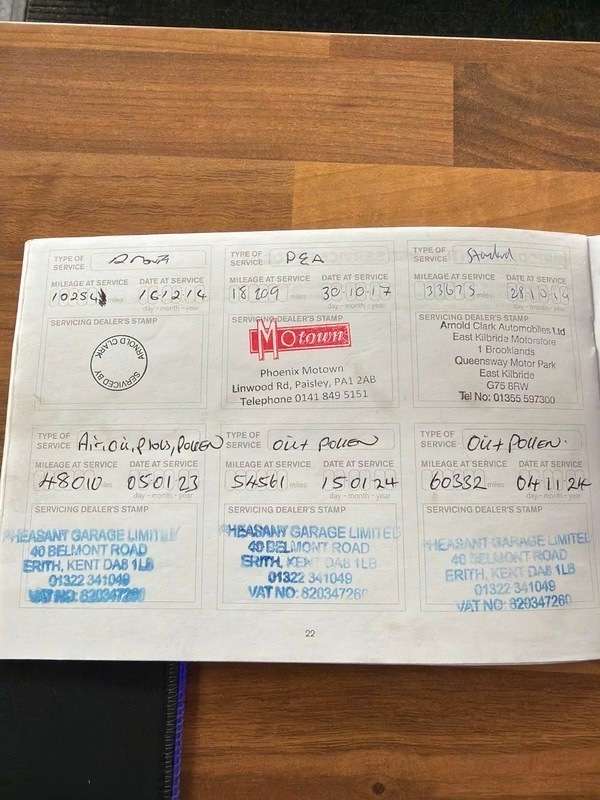 TYPE OF SERVICE
MILEAGE AT SERVICE DATE AT SERVICE
miles 16 12 14
day - month - year
SERVICING DEALER'S STAMP
SERVICED BY ARNOLD CLARK
TYPE OF SERVICE PEA
MILEAGE AT SERVICE DATE AT SERVICE
18209 miles 30-10-17
day - month - year
SERVICING DEALER'S STAMP
Motown
Phoenix Motown
Linwood Rd, Paisley, PA1 2AB
Telephone 0141 849 5151
TYPE OF SERVICE Standard
MILEAGE AT SERVICE DATE AT SERVICE
33675 miles 28 10 19
day - month - year
SERVICING DEALER'S STAMP
Arnold Clark Automobiles Ltd
East Kilbride Motorstore
1 Brooklands
Queensway Motor Park
East Kilbride
G75 8RW
Tel No: 01355 597300
TYPE OF SERVICE Air, oil, plugs, pollen
MILEAGE AT SERVICE DATE AT SERVICE
48010 miles 05 01 23
day - month - year
SERVICING DEALER'S STAMP
PHEASANT GARAGE LIMITED
40 BELMONT ROAD
ERITH, KENT DA8 1LB
01322 341049
VAT NO: 820347260
TYPE OF SERVICE oil + pollen
MILEAGE AT SERVICE DATE AT SERVICE
54561 miles 15 01 24
day - month - year
SERVICING DEALER'S STAMP
PHEASANT GARAGE LIMITED
40 BELMONT ROAD
ERITH, KENT DA8 1LB
01322 341049
VAT NO: 820347260
TYPE OF SERVICE Oil + pollen.
MILEAGE AT SERVICE DATE AT SERVICE
60332 miles 04 11 24
day - month - year
SERVICING DEALER'S STAMP
PHEASANT GARAGE LIMITED
40 BELMONT ROAD
ERITH, KENT DA8 1LB
01322 341049
VAT NO: 820347260
22